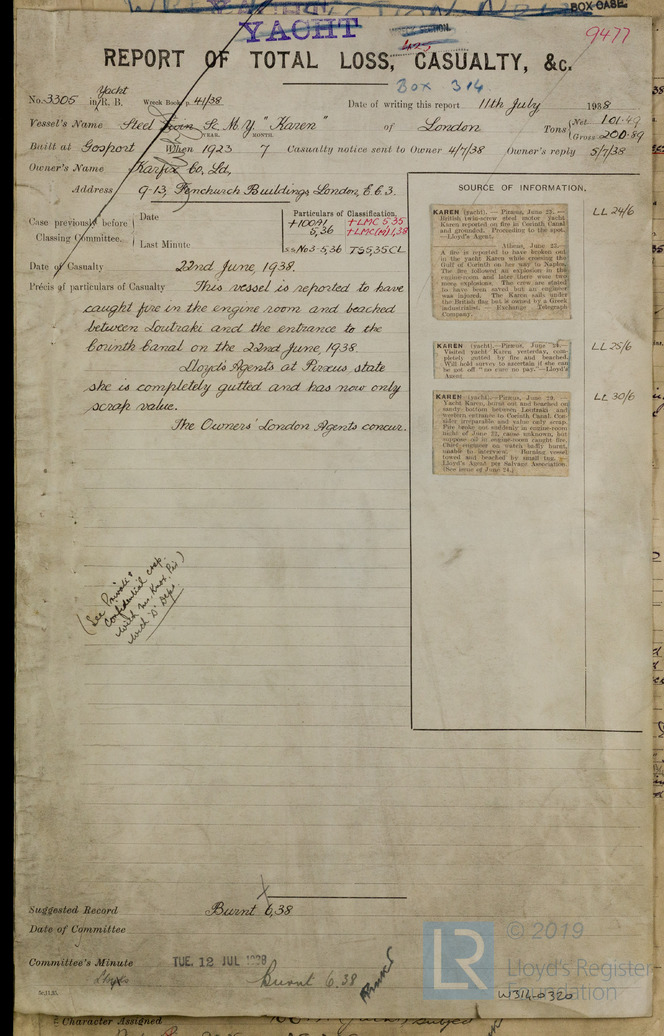 BOX CASE
YACHT
WRECK SECTION.
425
9477
REPORT OF TOTAL LOSS, CASUALTY, &c.
Box 314
Yacht
No. 3305 in R. B. Wreck Book p. 41/38 Date of writing this report 11th July 1938
Vessel's Name Steel Twin Sc. M. Y. "Karen" of London Tons Net 101.49
Gross 200.89
YEAR. MONTH.
Built at Gosport When 1923 7 Casualty notice sent to Owner 4/7/38 Owner's reply 5/7/38
Owner's Name Karfix Co, Ld,
Address 9-13, Fenchurch Buildings London, E.C.3.
Case previously before Classing Committee. Date
Last Minute
Particulars of Classification.
+100A1 +LMC 5,35
5,36 +LMC(m)1,38
SS No3-5,36 TS5,35CL
Date of Casualty 22nd June, 1938.
Précis of particulars of Casualty This vessel is reported to have
caught fire in the engine room and beached
between Loutraki and the entrance to the
Corinth Canal on the 22nd June, 1938.
Lloyds Agents at Piræus, state
she is completely gutted and has now only
scrap value.
The Owners' London Agents concur.
SOURCE OF INFORMATION.
KAREN (yacht). — Piræus, June 23. —
British twin-screw steel motor yacht
Karen reported on fire in Corinth Canal
and grounded. Proceeding to the spot.
—Lloyd's Agent.
Athens, June 22.—
A fire is reported to have broken out
in the yacht Karen while crossing the
Gulf of Corinth on her way to Naples.
The fire followed an explosion in the
engine-room and later there were two
more explosions. The crew are stated
to have been saved but an engineer
was injured. The Karen sails under
the British flag but is owned by a Greek
industrialist. — Exchange Telegraph
Company.
LL 24/6
KAREN (yacht).—Piræus, June 24.—
Visited yacht Karen yesterday, com-
pletely gutted by fire and beached.
Will hold survey to ascertain if she can
be got off "no cure no pay."—Lloyd's
Agent.
LL 25/6
KAREN (yacht).—Piræus, June 29.—
Yacht Karen, burnt out and beached on
sandy bottom between Loutraki and
western entrance to Corinth Canal. Con-
sider irreparable and value only scrap.
Fire broke out suddenly in engine-room
night of June 22, cause unknown, but
suppose oil in engine-room caught fire.
Chief engineer on watch badly burnt,
unable to interview. Burning vessel
towed and beached by small tug. —
Lloyd's Agent per Salvage Association.
(See issue of June 24.)
LL 30/6
(See Private &
Confidential corp.
with Mr. Knox, Pis)
with "D" Dept.
Suggested Record Burnt 6,38
Date of Committee
Committee's Minute TUE. 12 JUL 1938
Burnt 6.38
© 2019
LR
Lloyd's Register
Foundation
W314-0320
Character Assigned